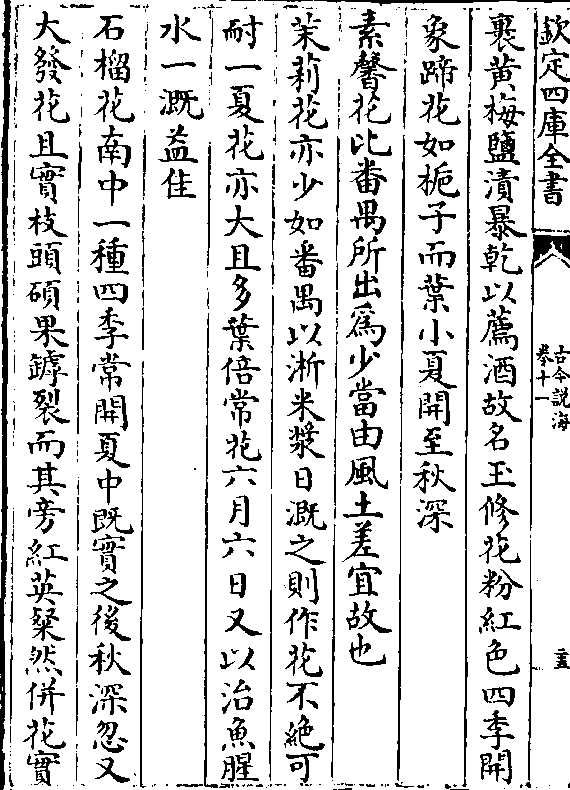 欽定四庫全書
古今說海
卷十一
二五
裹黃梅鹽漬暴乾以薦酒故名玉修花粉紅色四季開
象蹄花如梔子而葉小夏開至秋深
素馨花比番禺所出為少當由風土差宜故也
茉莉花亦少如番禺以淅米漿日溉之則作花不絶可
耐一夏花亦大且多葉倍常花六月六日又以治魚腥
水一溉益佳
石榴花南中一種四季常開夏中既實之後秋深忽又
大發花且實枝頭碩果罅裂而其旁紅英粲然併花實